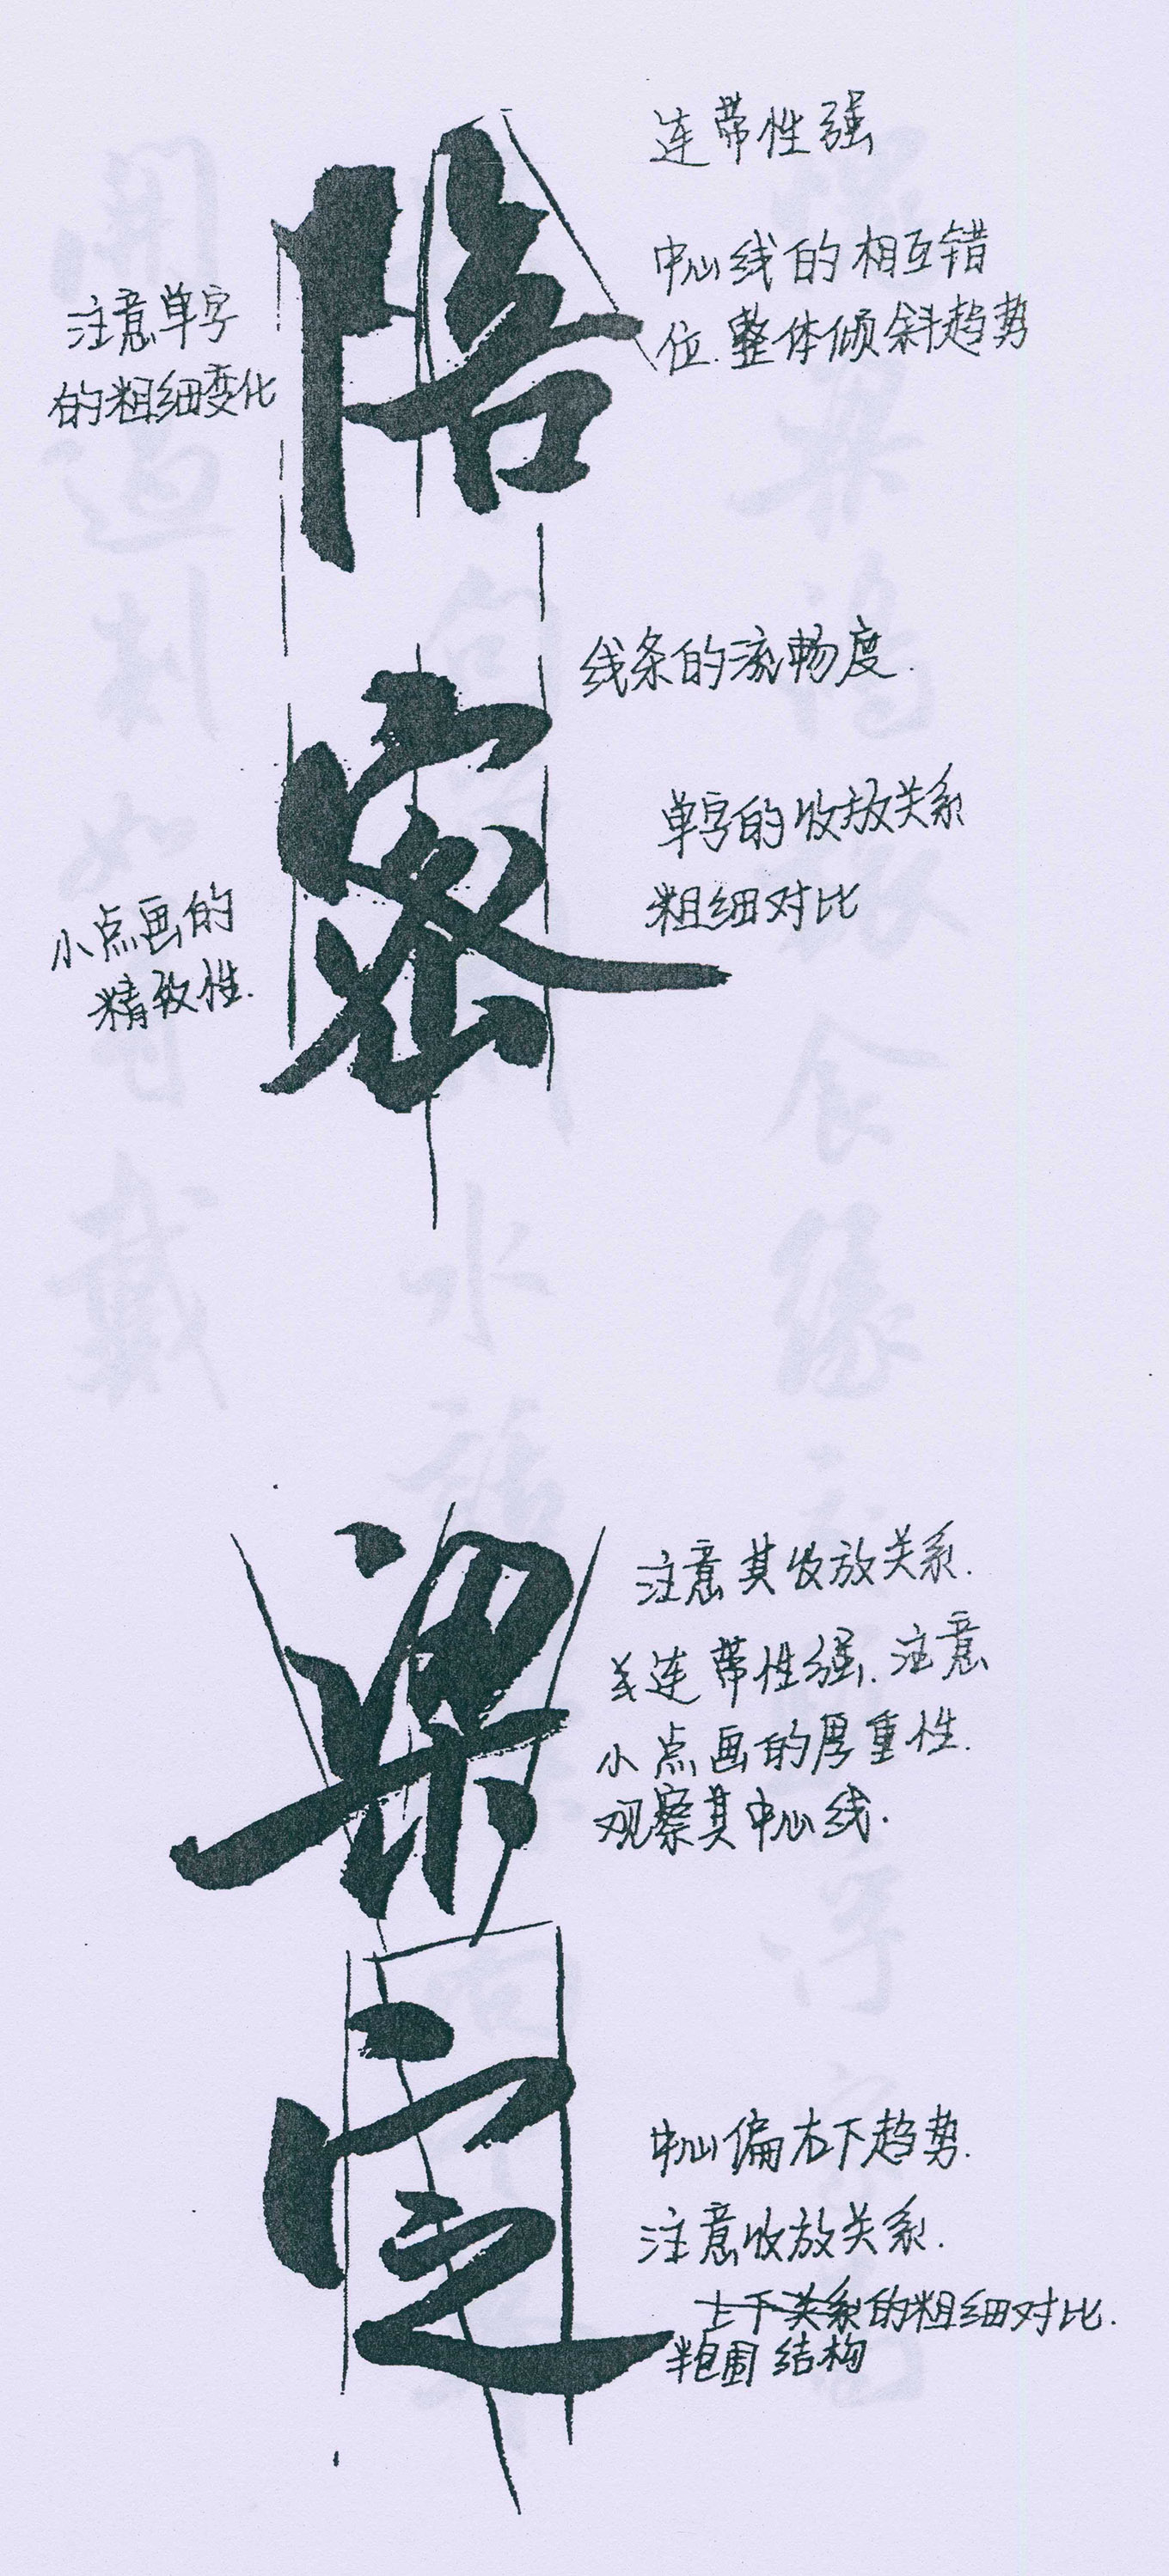 连带性强
中心线的相互错
位.整体倾斜趋势
注意单字
的粗细变化
陪
线条的流畅度.
单字的收放关系
粗细对比
小点画的
精致性.
密
注意其收放关系.
连带性强.注意
小点画的厚重性.
观察其中心线.
中心偏右下趋势.
注意收放关系.
上下关系的粗细对比.
半包围结构
定